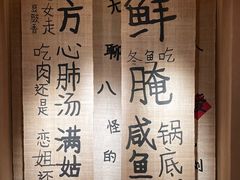 鲜
冬鱼吃
腌
咸鱼
锅底
聊
八
怪的
方
心肺汤
满姑
女走
豆豉香
吃肉还是
恋姐还